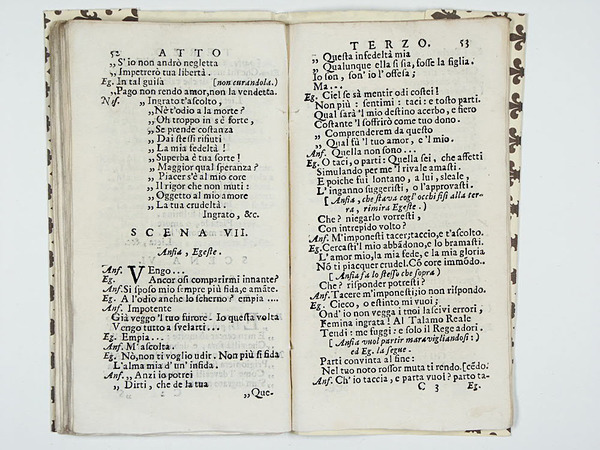 52 ATTO
„S'io non andrò negletta
„Impetrerò tua libertà.
Eg. In tal guisa (non curandola.)
„Pago non rendo amor, non la vendetta.
Nef. „Ingrato t'ascolto,
„Nè t'odio a la morte?
„Oh troppo in sè forte,
„Se prende costanza
„Dai stessi rifiuti
„La mia fedeltà!
„Superba è tua sorte!
„Maggior qual speranza?
„Piacer s'è al mio core
„Il rigor che non muti:
„Oggetto al mio amore
„La tua crudeltà.
Ingrato, &c.
SCENA VII.
Ansia, Egeste.
Ans. VEngo...
Eg. Ancor osi comparirmi innante?
Ans. Si sposo mio sempre più fida, e amāte.
Eg. A l'odio anche lo scherno? empia ....
Ans. Impotente
Già veggo 'l tuo furore. Io questa volta
Vengo tutto a svelarti...
Eg. Empia...
Ans. M'ascolta.
Eg. Nò, non ti voglio udir. Non più si fida
L'alma mia d'un' infida.
Ans. „Anzi io potrei
„Dirti, che de la tua
„Que-
TERZO. 53
„Questa infedeltà mia
„Qualunque ella si sia, fosse la figlia.
Io son, son'io l'offesa;
Ma...
Eg. Ciel se sà mentir odi costei!
Non più: sentimi: taci: e tosto parti.
Qual sarà 'l mio destino acerbo, e fiero
Costante 'l soffrirò come tuo dono.
„Comprenderem da questo
„Qual fù 'l tuo amor, e 'l mio.
Ans. Quella non sono...
Eg. O taci, o parti: Quella sei, che affetti
Simulando per me 'l rivale amasti.
E poiche fui lontano, a lui, sleale,
L'inganno suggeristi, o l'approvasti.
[Ansia, che stava cogl' occhi fisi alla ter-
ra, rimira Egeste.)
Che? niegarlo vorresti,
Con intrepido volto?
Ans. M'imponesti tacer; taccio, e t'ascolto.
Eg. Cercasti 'l mio abbādono, e lo bramasti.
L'amor mio, la mia fede, e la mia gloria
Nō ti piacquer crudel. Cō core immōdo..
[Ansia fa lo stesso che sopra)
Che? risponder potresti?
Ans. Tacere m'imponesti; io non rispondo.
Eg. Cieco, o estinto mi vuoi;
Ond'io non vegga i tuoi lascivi errori,
Femina ingrata! Al Talamo Reale
Tendi: me fuggi: e solo il Rege adori.
[Ansia vuol partir maravigliandosi:)
ed Eg. la segue.
Parti convinta al fine:
Nel tuo noto rossor muta ti rendo. [cēdo.
Ans. Ch'io taccia, e parta vuol? parto ta-
C 3 Eg.